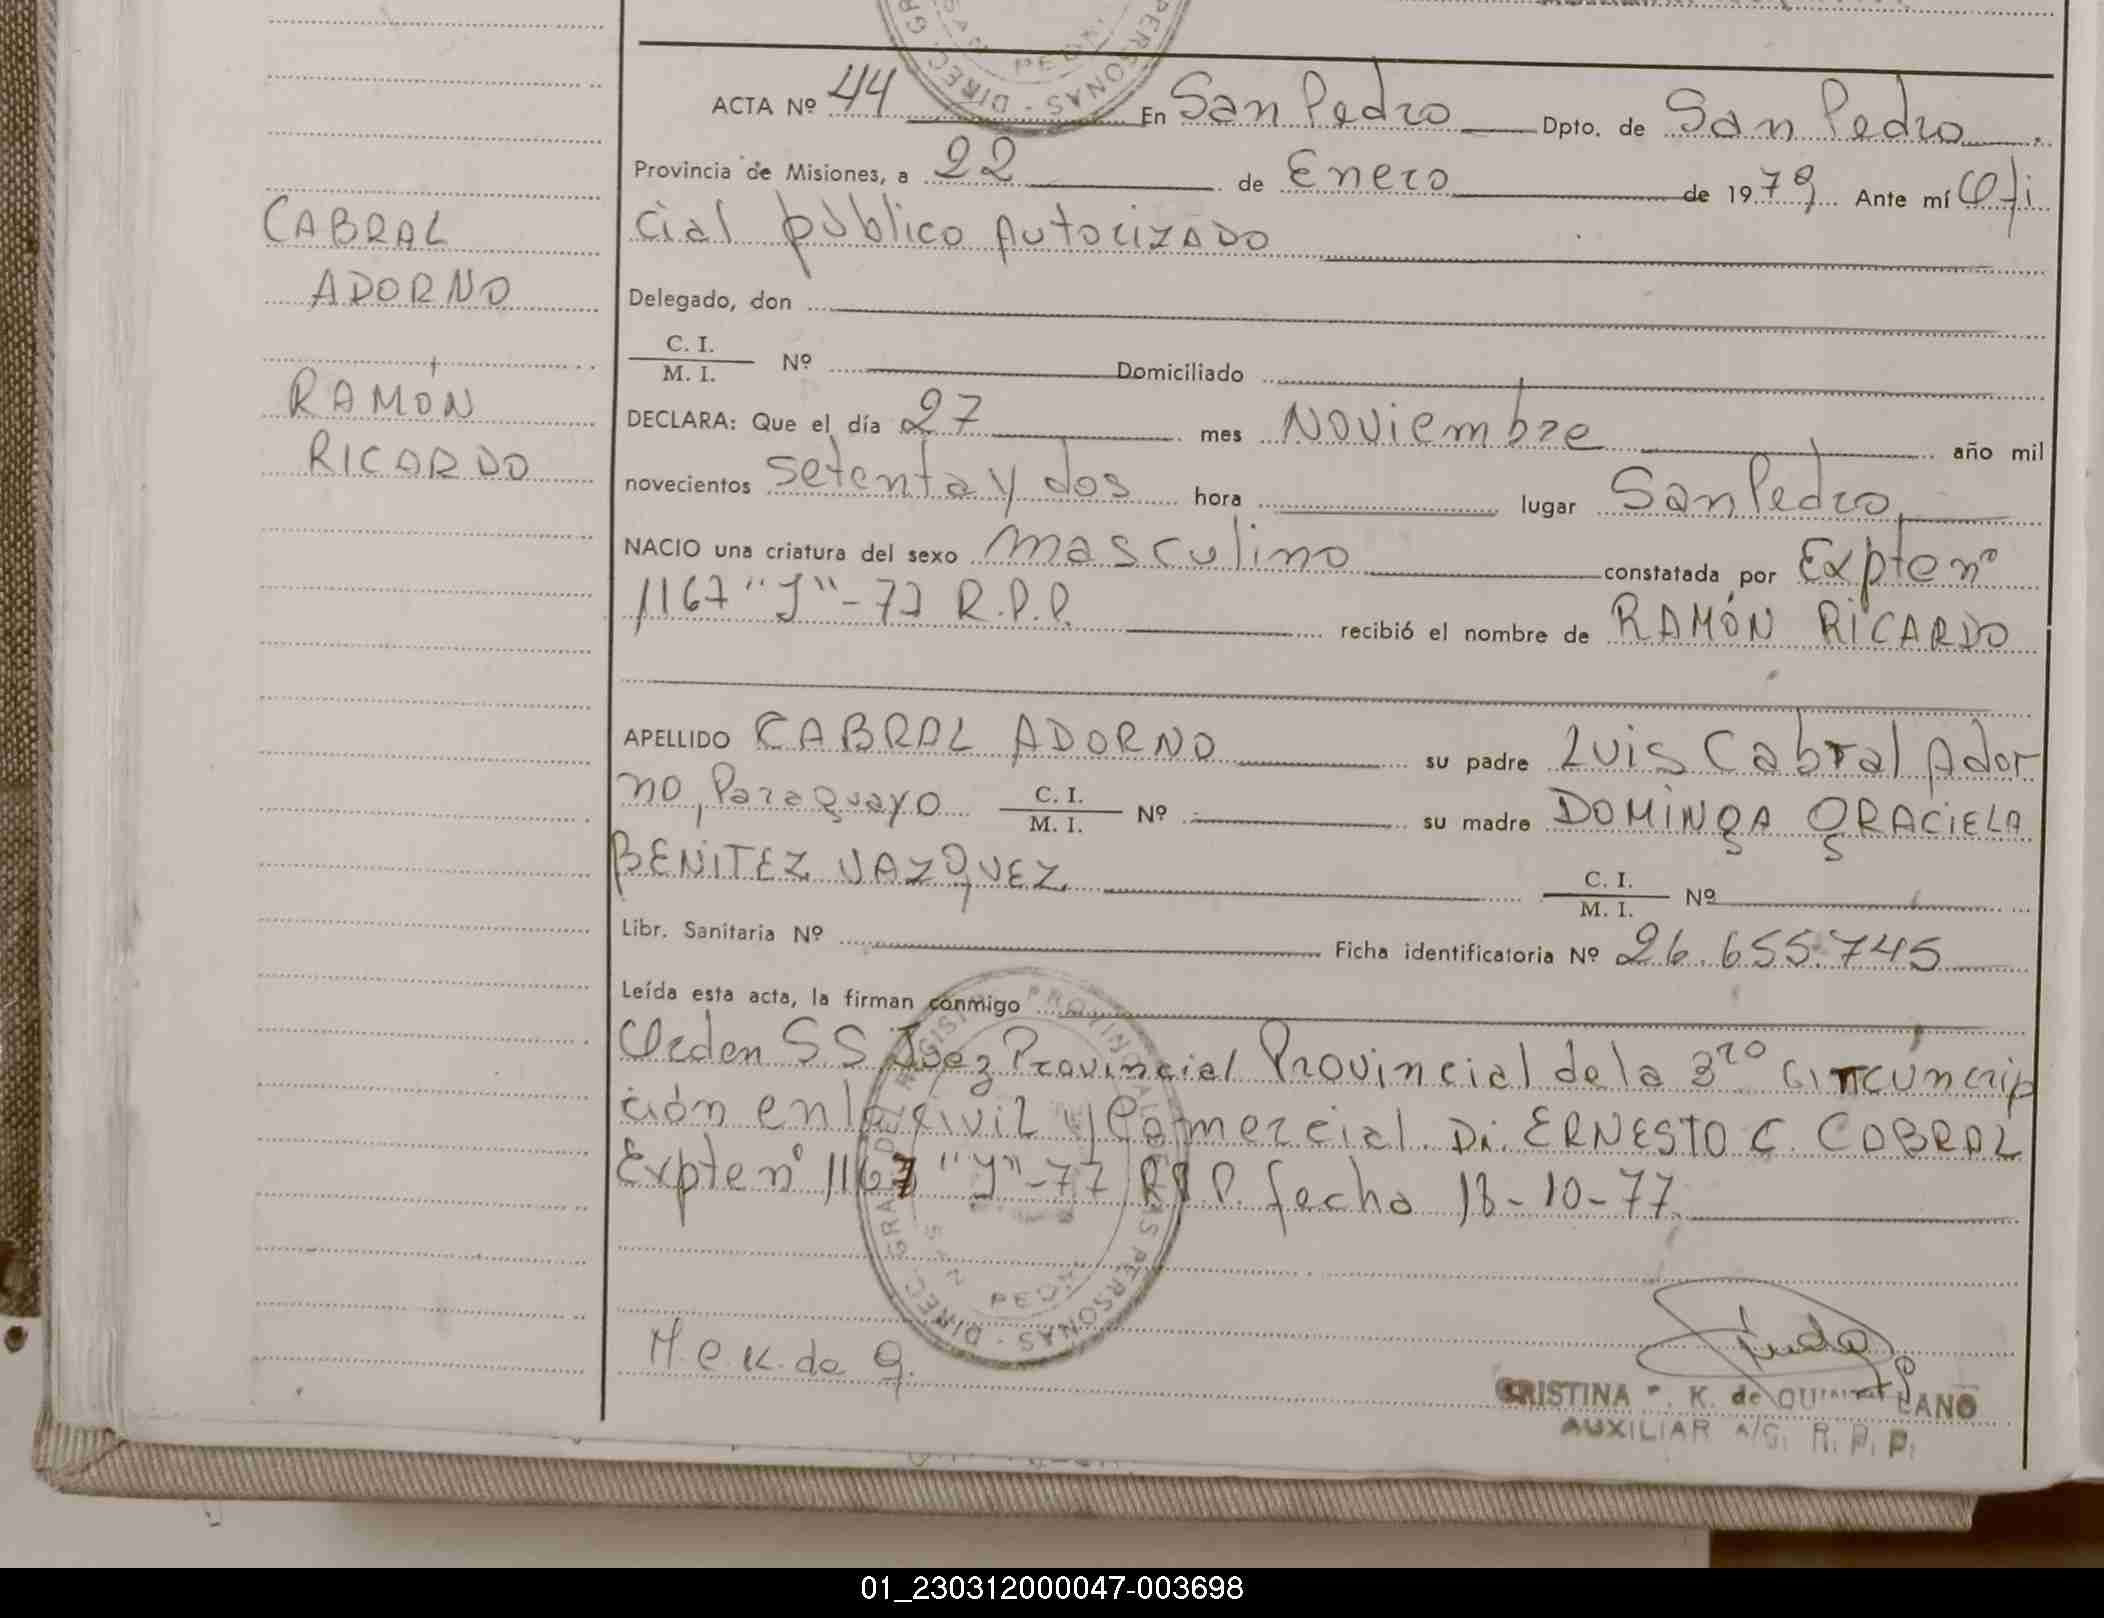 ACTA Nº 44 En San Pedro Dpto. de San Pedro
Provincia de Misiones, a 22 de Enero de 1979 Ante mí Ofi
CABRAL
cial público Autorizado
ADORNO
Delegado, don
C. I.
M. I. Nº Domiciliado
RAMÓN
DECLARA: Que el día 27 mes Noviembre año mil
RICARDO
novecientos setenta y dos hora lugar San Pedro
NACIO una criatura del sexo masculino constatada por Expte nº
1167 "J" - 77 R.P.P. recibió el nombre de RAMÓN RICARDO
APELLIDO CABRAL ADORNO su padre Luis Cabral Ador
no, Paraguayo C. I. M. I. Nº su madre DOMINGA GRACIELA
BENITEZ VAZQUEZ C. I. M. I. Nº
Libr. Sanitaria Nº Ficha identificatoria Nº 26.655.745
Leída esta acta, la firman conmigo
Orden S S Juez Provincial Provincial de la 3ra Circuncrip
ción en lo civil y Comercial. Dr. ERNESTO C. CABRAL
Expte nº 1167 "J" - 77 R.P.P. fecha 18-10-77
M.C.K. de Q.
CRISTINA K. de
AUXILIAR A/C. R. P. P.
01_230312000047-003698